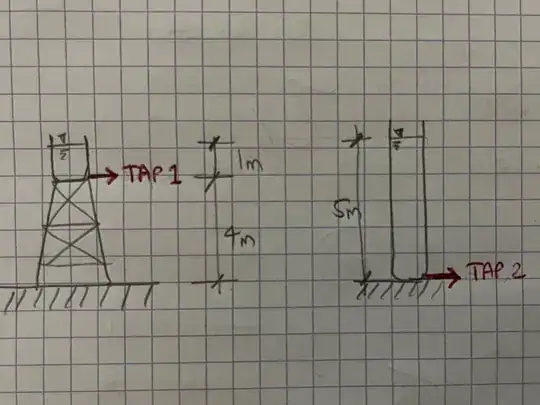 TAP 1
1m
4m
5m
TAP 2